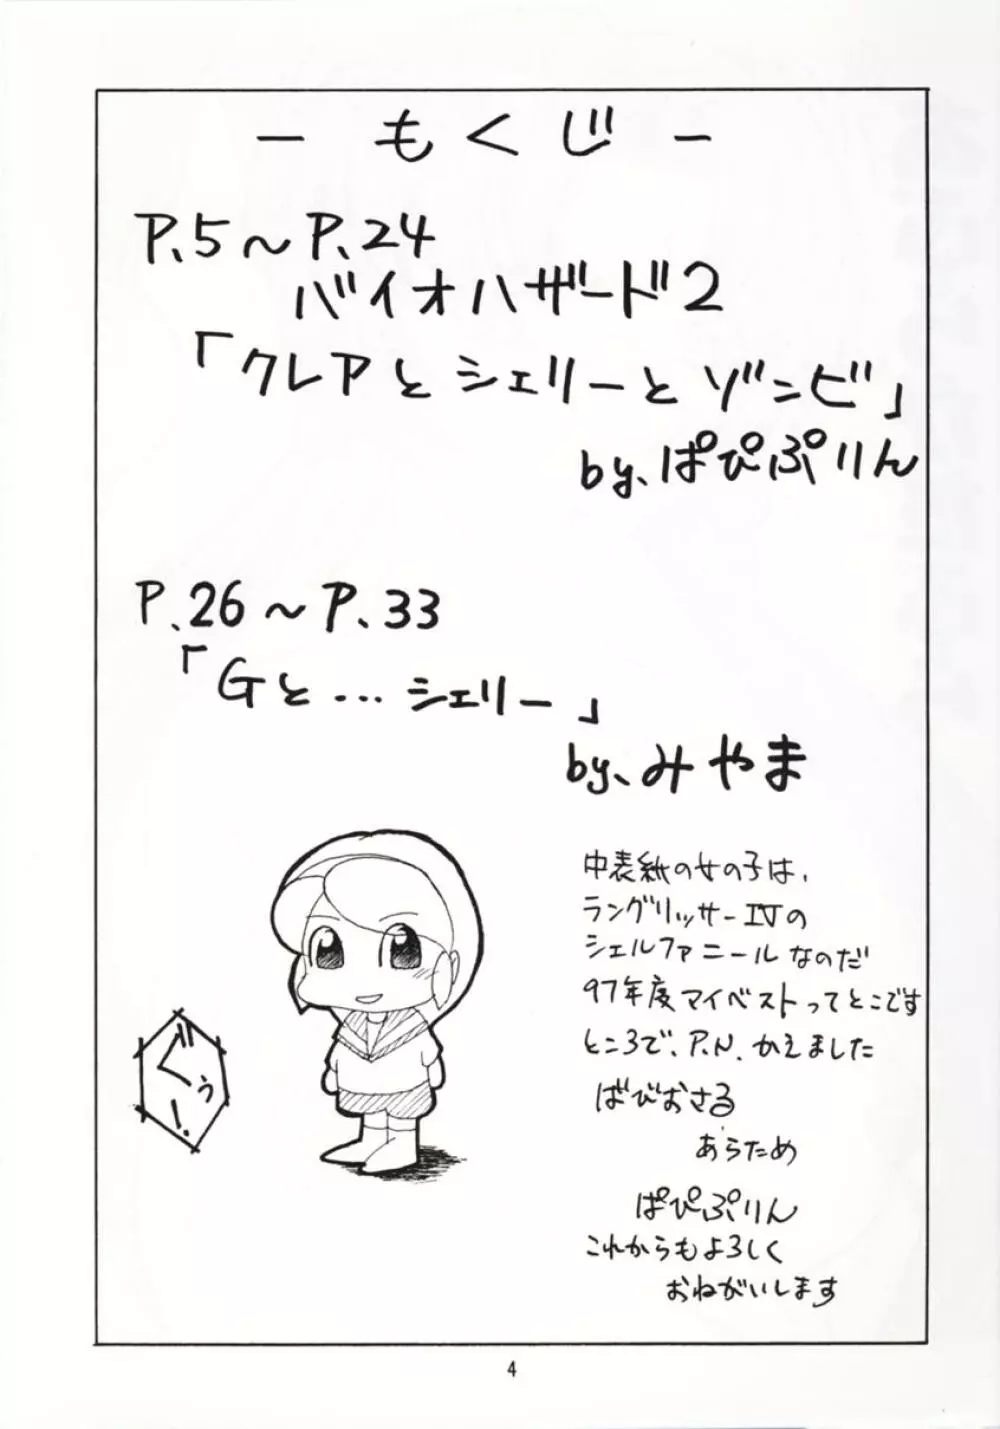 －もくじ－
P.5～P.24
バイオハザード2
「クレアとシェリーとゾンビ」
by.ぱぴぷりん
P.26～P.33
「Gと…シェリー」
by.みやま
中表紙の女の子は、
ラングリッサーIVの
シェルファニールなのだ
97年度マイベストってとこです
ところで、P.N.かえました
ばびおさる
あらため
ぱぴぷりん
これからもよろしく
おねがいします
ぐぅ!
4